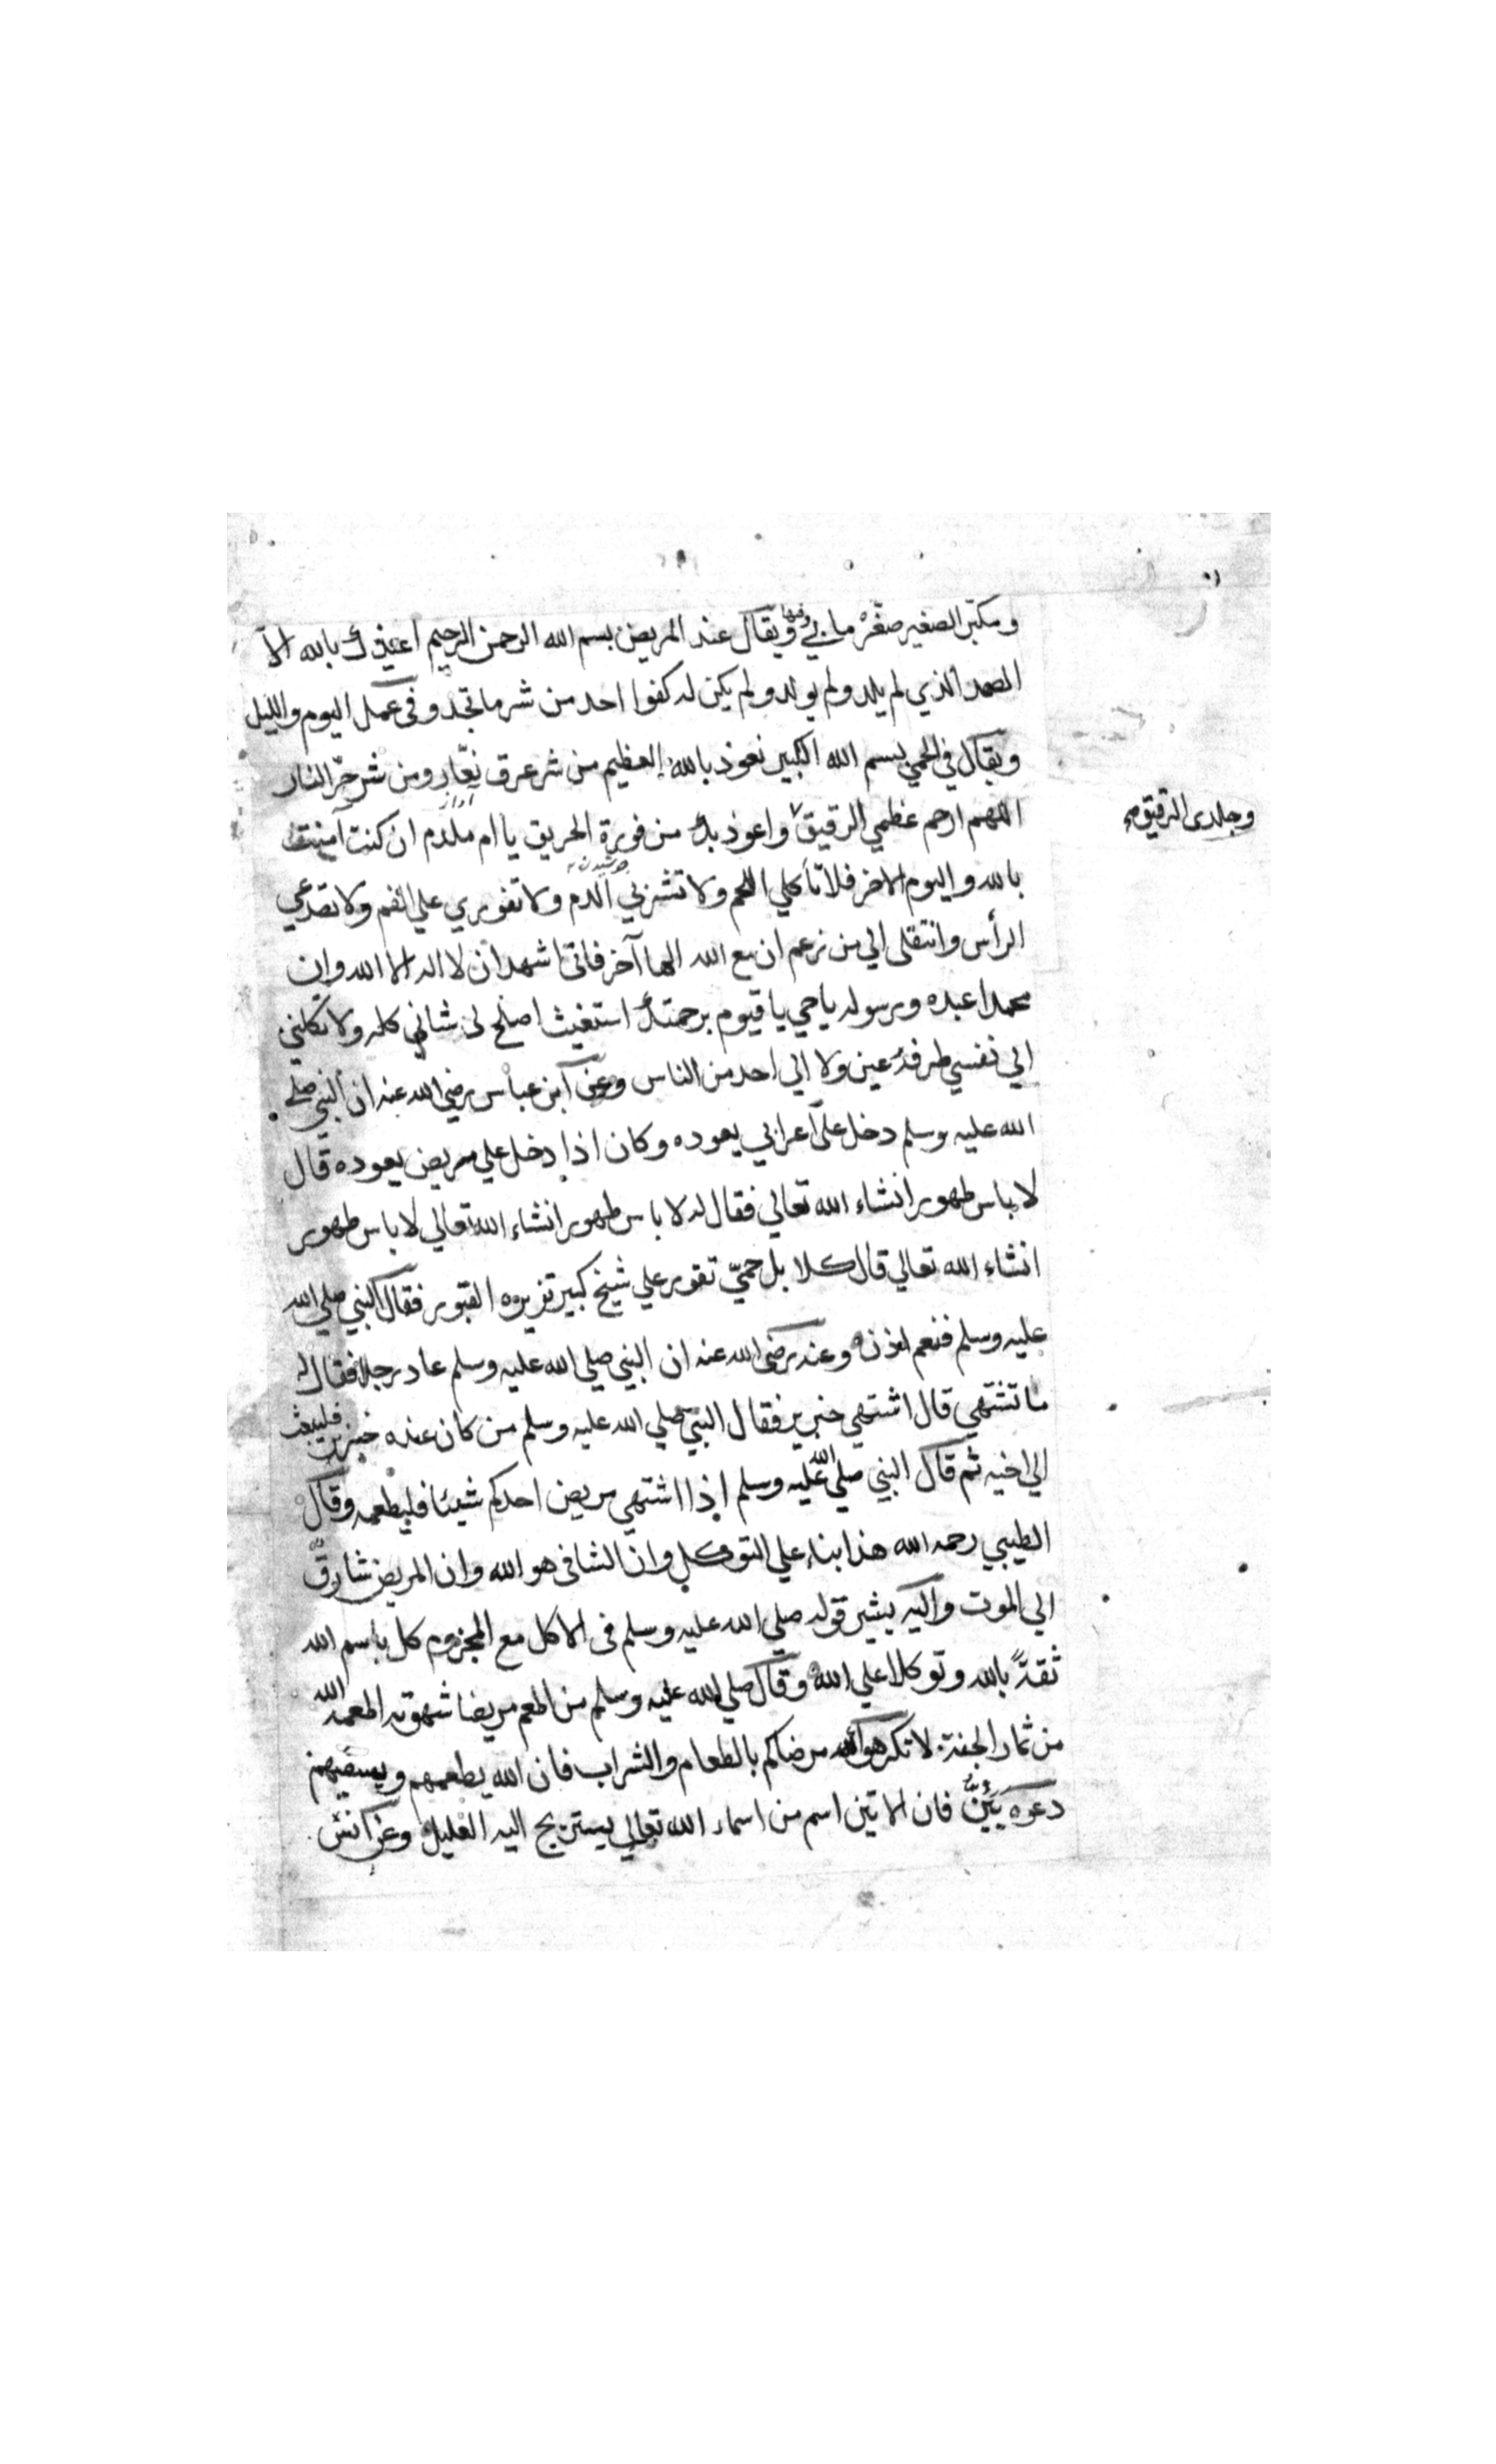 ومكبّر الصغير صغّره ما بي ويقال عند المريض بسم الله الرحمن الرحيم اعيذك بالله الا
الصمد الذي لم يلد ولم يولد ولم يكن له كفوا احد من شر ما تجد وفى عمل اليوم والليل
ويقال في الحمي بسم الله الكبير نعوذ بالله العظيم من شر عرق نعّار ومن شر حرّ النار
اللهم ارحم عظمي الرقيق واعوذ بك من فورة الحريق يا ام ملدم ان كنت آمنت
وجلدى الرقيق
بالله واليوم الاخر فلا تأكلي اللحم ولا تشربي الدم ولا تفوري علي الفم ولا تصدعي
الرأس وانتقلى الي من زعم ان مع الله الها آخر فانى اشهد ان لا اله الا الله وان
محمدا عبده ورسوله يا حي يا قيوم برحمتك استغيث اصلح لى شاني كله ولا تكلني
الي نفسي طرفة عين ولا الي احد من الناس وعن ابن عباس رضي الله عنه ان النبي صلي
الله عليه وسلم دخل على اعرابي يعوده وكان اذا دخل علي مريض يعوده قال
لا باس طهور انشاء الله تعالي فقال له لا باس طهور انشاء الله تعالي لا باس طهور
انشاء الله تعالي قال كلا بل حميّ تفور علي شيخ كبير تزيره القبور فقال النبي صلي الله
عليه وسلم فنعم اذن وعنه رضى الله عنه ان النبي صلي الله عليه وسلم عاد رجلا فقال له
ما تشتهي قال اشتهي خبز بر فقال النبي صلي الله عليه وسلم من كان عنده خبز بر فليبعث
الي اخيه ثم قال النبي صلي الله عليه وسلم اذا اشتهي مريض احدكم شيئا فليطعمه وقال
الطيبي رحمه الله هذا بناء علي التوكل وان الشافى هو الله وان المريض شارف
الي الموت واليه يشير قوله صلي الله عليه وسلم فى الاكل مع المجزوم كل باسم الله
ثقة بالله وتوكلا علي الله وقال صلي الله عليه وسلم من اطعم مريضا شهوته اطعمه الله
من ثمار الجنة لا تكرهوا مرضاكم بالطعام والشراب فان الله يطعمهم ويسقيهم
دعوه يئنّ فان الانين اسم من اسماء الله تعالي يستريح اليه العليل وعن انس